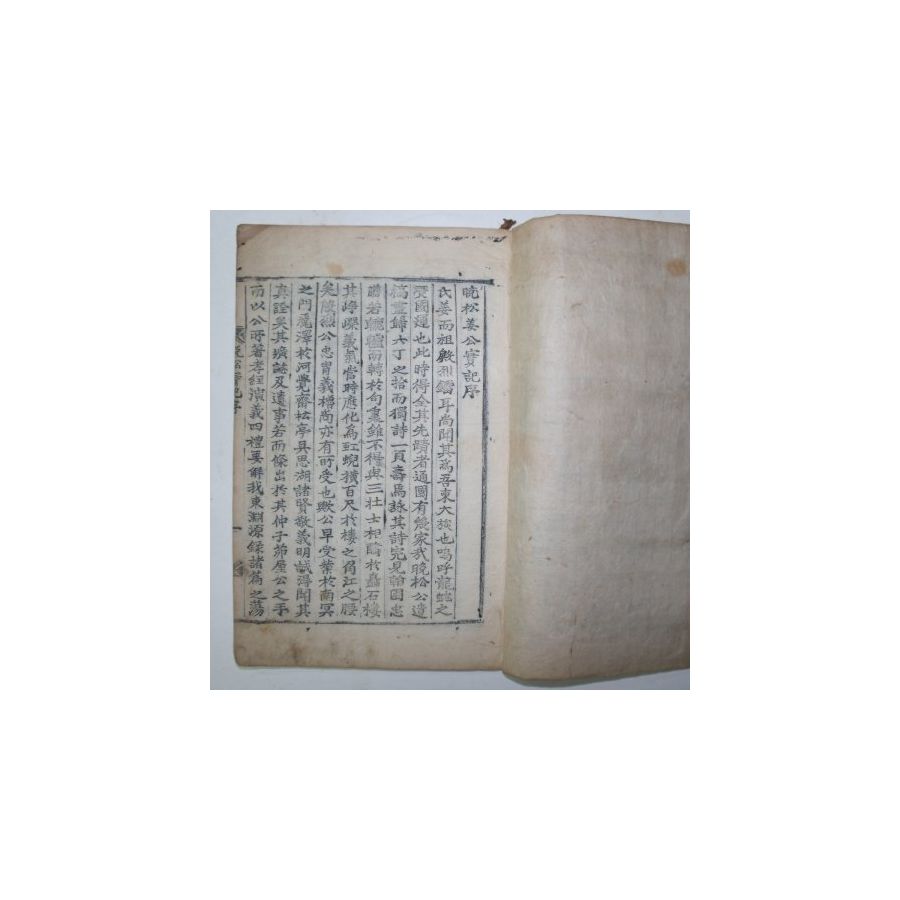 晩松姜公實記序
氏姜而祖殷烈鐺耳尚聞其爲吾東大族也嗚呼龍蛇之
燹國運也此時得全其先蹟者通國有幾家我晩松公遺
稿盡歸六丁之拾而獨詩一頁壽焉詠其詩完見
若 而轉於句 雖不得與三壯士相 於矗石樓
其崢嶸義氣當時應化爲虹蜺橫百尺於樓之角江之腰
矣 公忠冑義 尚亦有所受也歟公早受業於南冥
之門麗澤於河覺齋松亭具思湖諸賢敬義明誠得聞其
眞詮矣其壙誌及遺事若而條出於其仲子茆屋公之手
而以公所著孝經演義四禮要解我東淵源錄諸篇之蕩
晩松實記序 一